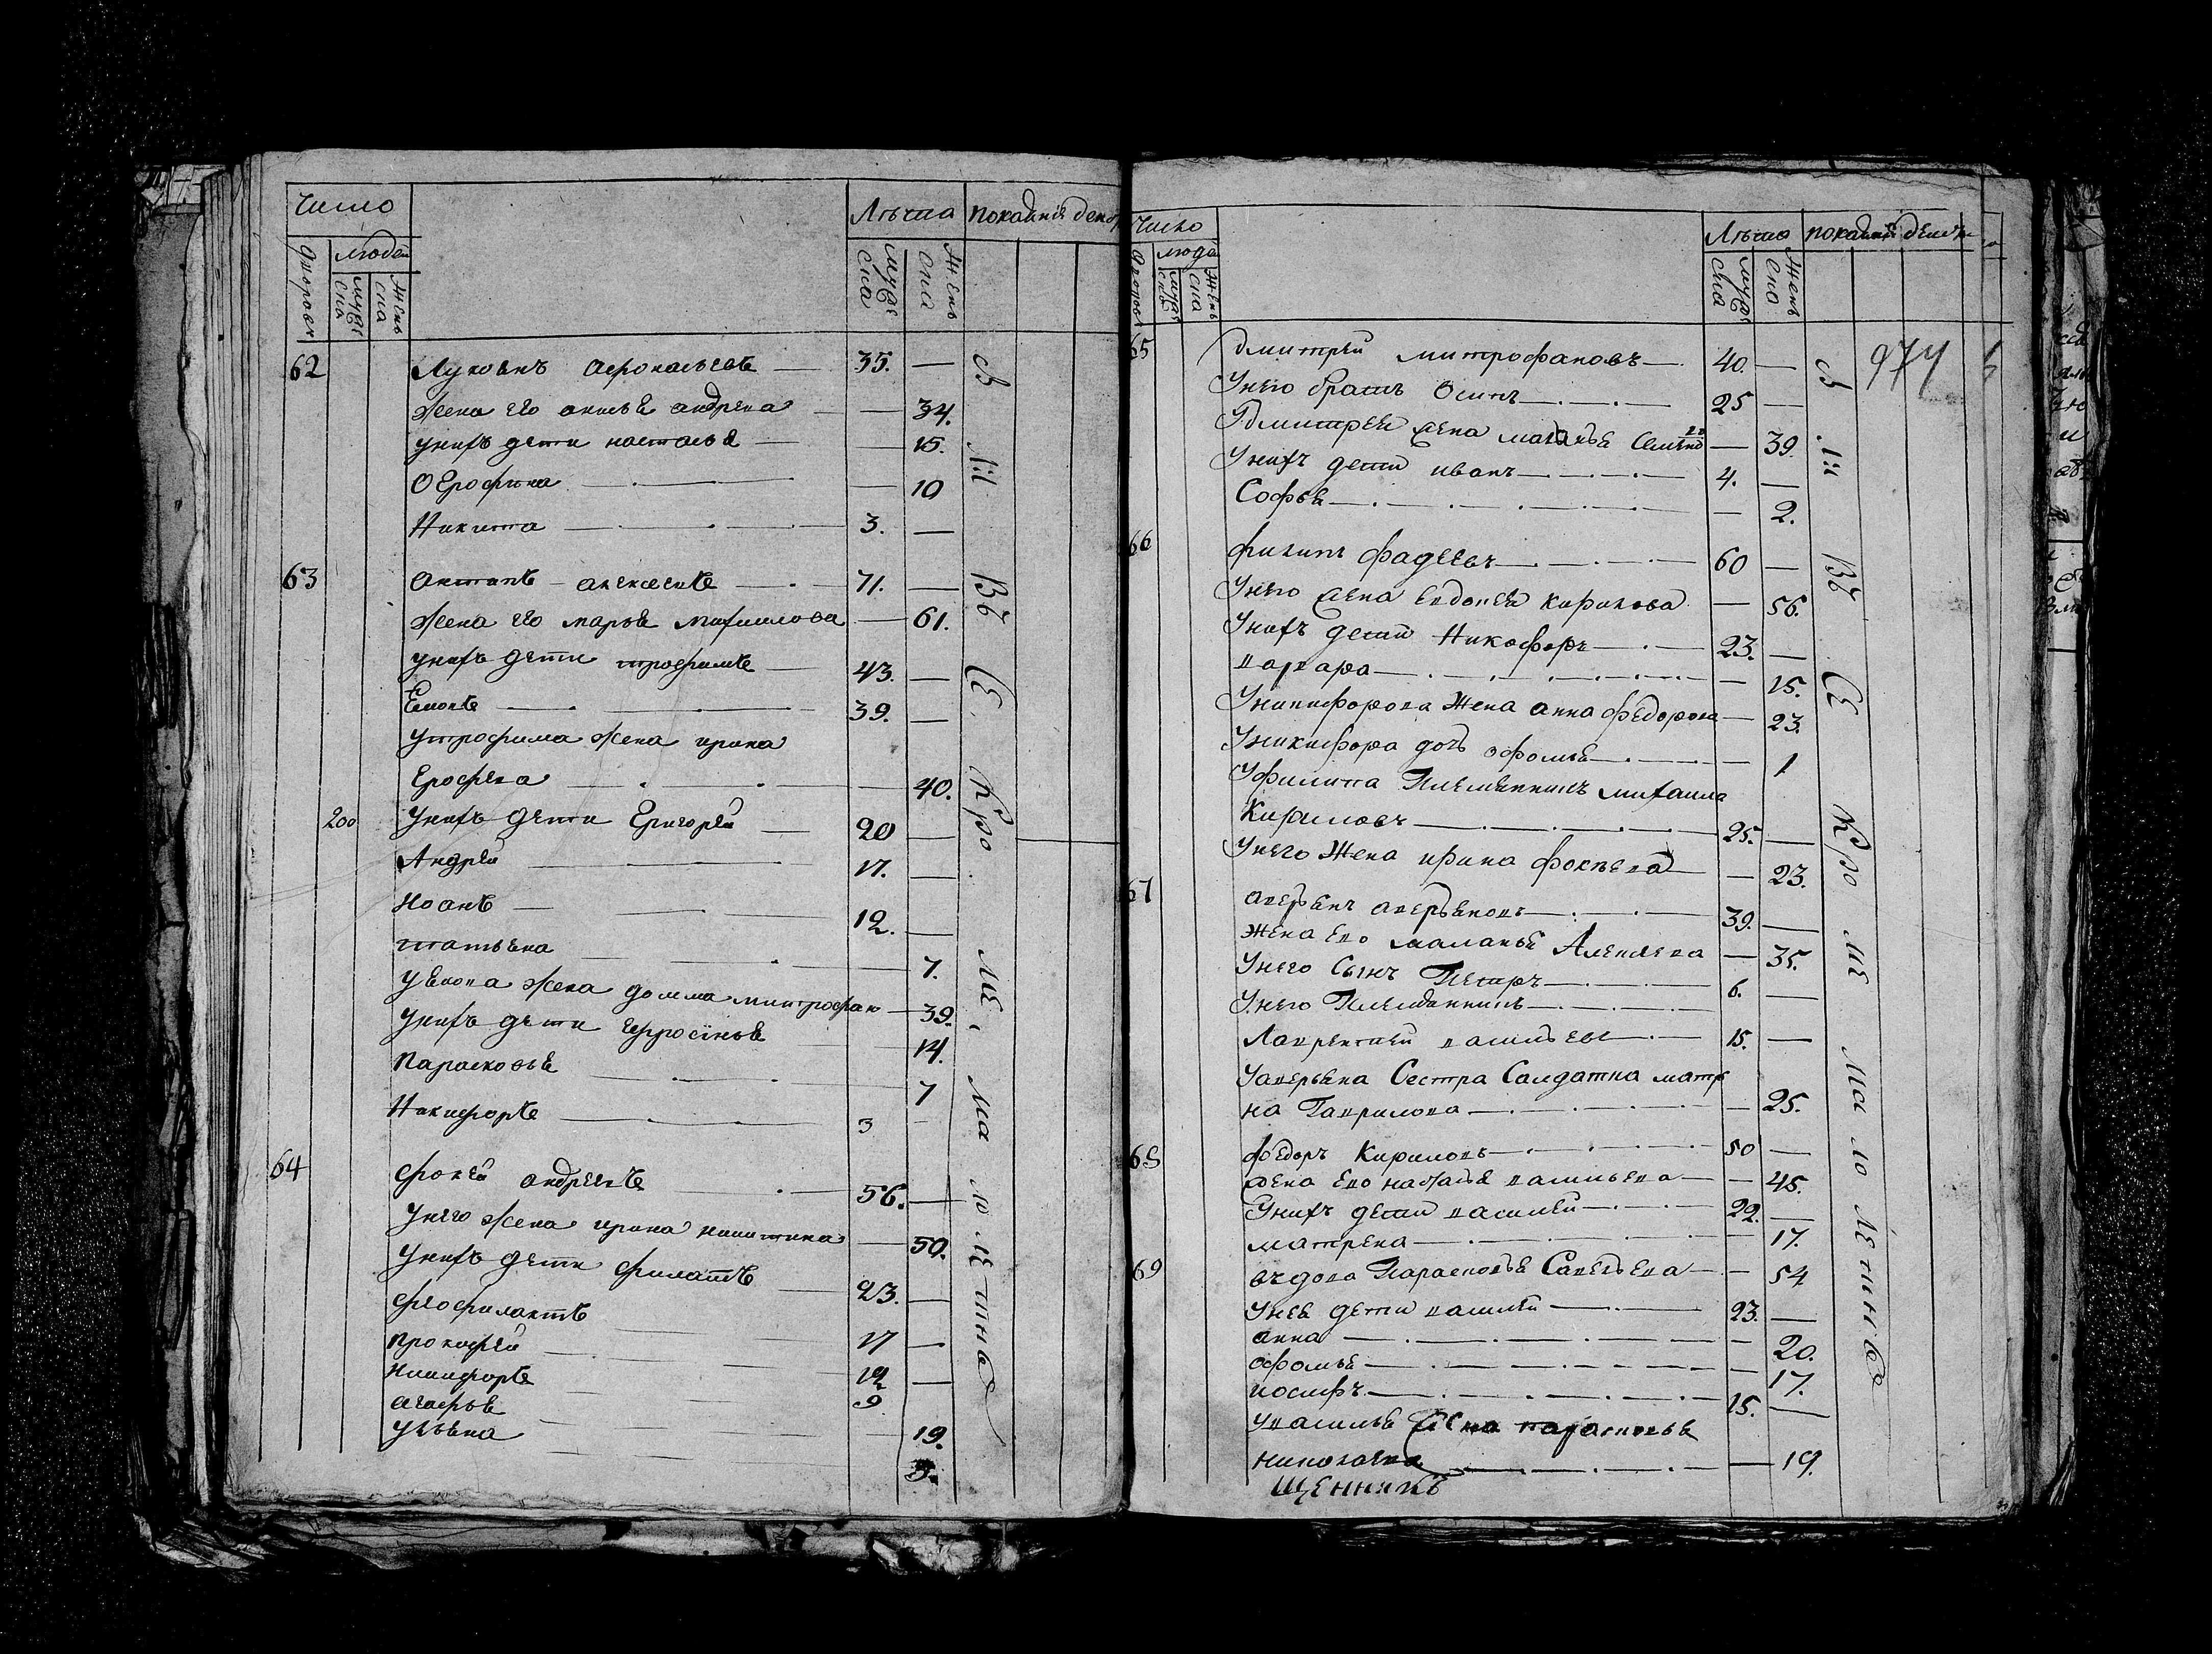 Число
Лѣта
покаянїя
дворовъ
людей
мужеска
женска
мужеска
женска
62 Лукоянъ Афонасьевъ 35.
Жена его анисья андрева 34.
унихъ дети настасья 15.
Офросина 10
Никита 3.
63 алексеевъ 71.
Жена его марья михаилова 61.
унихъ дети трофимъ 43.
39.
утрофима жена ирина
Ерофева 40.
200 унихъ дети Григорей 20
Андрей 17.
Иоанъ 12.
татьяна 7.
жена домна митрофан 39.
унихъ дети ефросїнья 14.
Парасковья 7
Никифоръ 3
64 фокей андреевъ 56.
унего жена ирина никитина 50.
унихъ дети филатъ 23.
феофилактъ 17
Прокофей 12
Никифоръ 9
агафья 19.
ульяна
Всѣ кроме малолетнихъ
Число
Лѣта
покаянїя
дворовъ
людей
мужеска
женска
мужеска
женска
974
65 Дмитрей митрофановъ 40.
Унего братъ Осипъ 25
Удмитрея жена маланья Семено 39.
Унихъ дети иванъ 4.
Софья 2.
66 филипъ фадеевъ 60
Унего жена евдокея кирилова 56.
Унихъ дети Никофоръ 23.
варвара 15.
Уникифорова Жена анна федорова 23.
Уникифора дочь офомья 1
Уфилипа Племянникъ михаила
Кириловъ 25.
Унего Жена ирина фокѣева 23.
67 аверьянъ аверьяновъ 39.
Жена ево маланья Алексеева 35.
Унего Сынъ Петръ 6.
Унего Племянникъ
Лаврентей васильевъ 15.
Уаверьяна Сестра Салдатка матре
на Гаврилова 25.
68 федоръ Кириловъ 50
жена ево наталья васильева 45.
Унихъ дети василей 22.
матрена 17.
69 въдова Парасковья Савельева 54
Унея дети василей 23.
анна 20.
офомья 17.
иосифъ 15.
Увасилья жена парасковья
николаева 19.
щенникъ